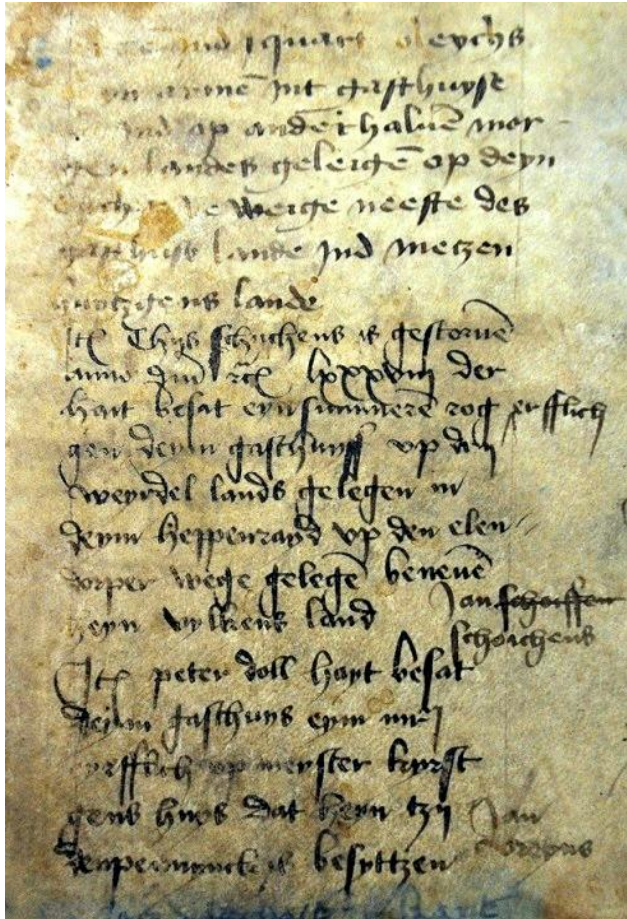 ind j quart oleychs
armē int gasthuyse
ind op anderhaluē mor-
gen landes geleigē op deyn
weige neeste des
gasthuys lande ind metzen
lande
Itē Thys schichens is gestoruē
anno dm̄ lxxxviij der
hait besat eyn summerē rog erfflich
gen deym gasthuyss vp dꝛij
weyrdel lands gelegen in
deym heppenrayd vp den elen-
dorper wege gelegē beneuē
heyn vylkens land
Jan schoiffen
schoichens
Itē peter doll hayt besat
deym gasthuys eym mrʼ
erfflich vp meyster kyrst
gens huys dat heyn tzij
denpennynck is besyttzen
Jan